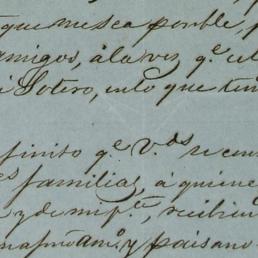 que me sea posible, 
amigos, á la vez q.e el
Sotero, en lo que ten
finito q.e V.ds se con
familias, á quiene
y de m.. p.te, recibien
am.o y paisano